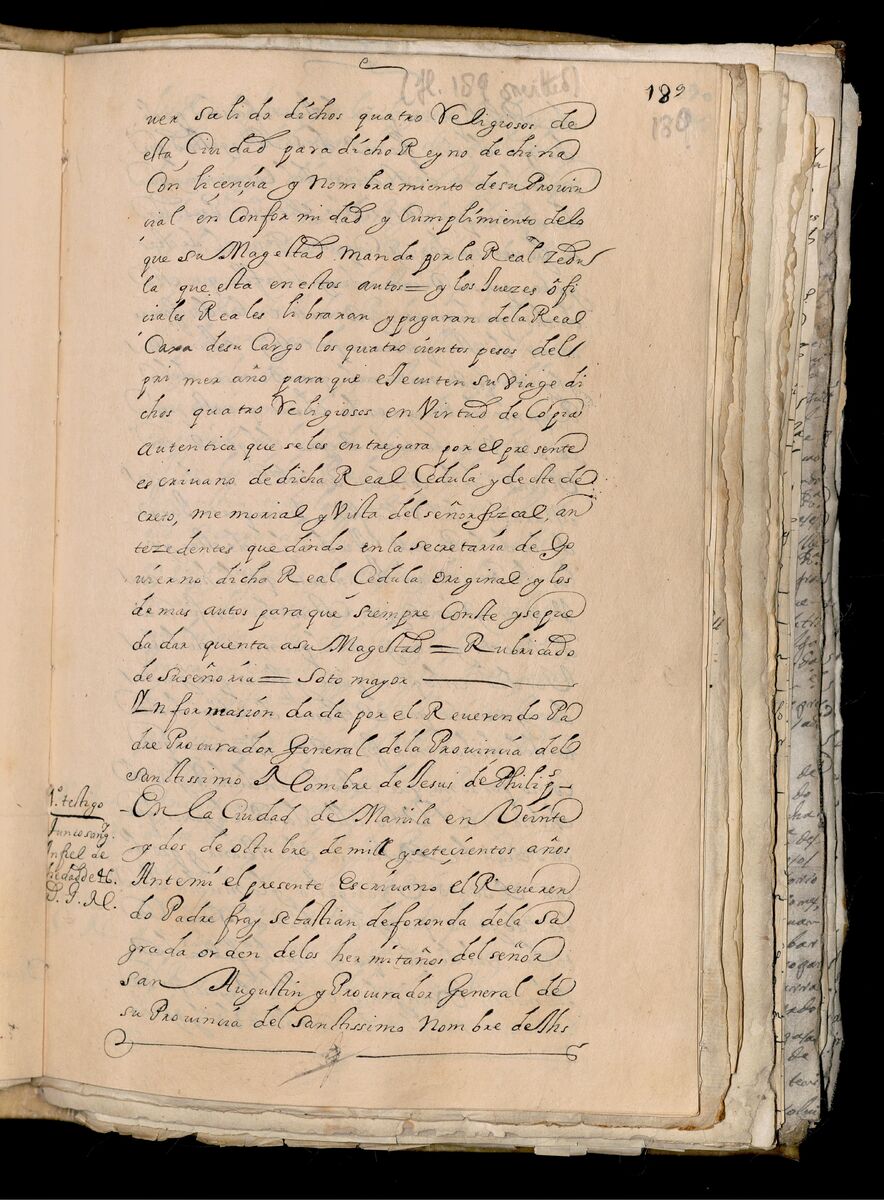 189
ver salido dichos quatro Religiosos de
esta Ciudad para dicho Reyno de china
Con licencia y Nombramiento desu Provin
cial en Conformidad y Cumplimiento delo
que su Magestad manda por la Real zedu
la que esta en estos autos = y los Juezes ofi
ciales Reales libraran y pagaran dela Real
Caxa desu Cargo los quatro cientos pesos del
primer año para que eJecuten su Viage di
chos quatro Religiosos en Virtud de Copia
Autentica que seles entregara por el presente
escrivano de dicha Real Cedula y de este de
creto, memorial y Vista del señor fizcal, an
tezedentes quedando en la secretaria de Go
vierno dicha Real Cedula original y los
demas autos para que siempre Conste y sepue
da dar quenta asu Magestad = Rubricado
de suseñoria = Sotomayor
Informasion dada por el Reverendo Pa
dre Procurador General dela Provincia del
santissimo Nombre de Jesus de Philips
En la Ciudad de Manila en Veinte
y dos de octubre de mill y setecientos años
Antemi el presente Escrivano el Reveren
do Padre fray sebastian de foronda dela sa
grada orden delos hermitaños del señor
san Augustin y Procurador General de
su Provincia del santissimo Nombre de Jhs
1º testigo
Infiel de
hedad de 46.
D. G. N.